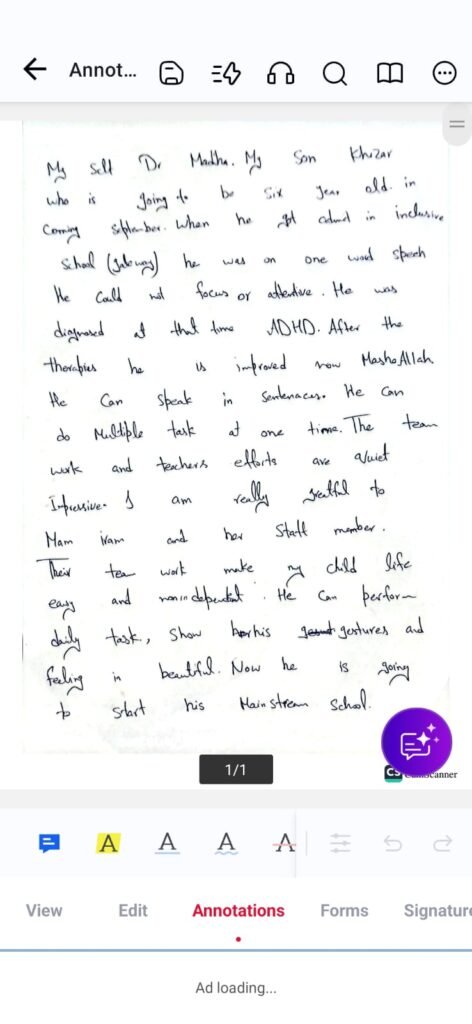 Annot...
My Self Dr Madha. My Son Khizar
who is going to be six year old. in
Coming September. When he got admit in inclusive
School (gateway) he was on one word speech
He Could not focus or attentive. He was
diagnosed at that time ADHD. After the
therapies he is improved now MashaAllah
He Can Speak in Sentenaces. He Can
do Multiple task at one time. The team
work and teachers efforts are Quiet
Impressive. I am really greatful to
Mam iram and her Staff member.
Their tea work make my child life
easy and nonindependent. He Can perform
daily task, Show his gestures and
feeling in beautiful. Now he is going
to start his Main stream School.
1/1
CS CamScanner
A A A A
View Edit Annotations Forms Signature
Ad loading...